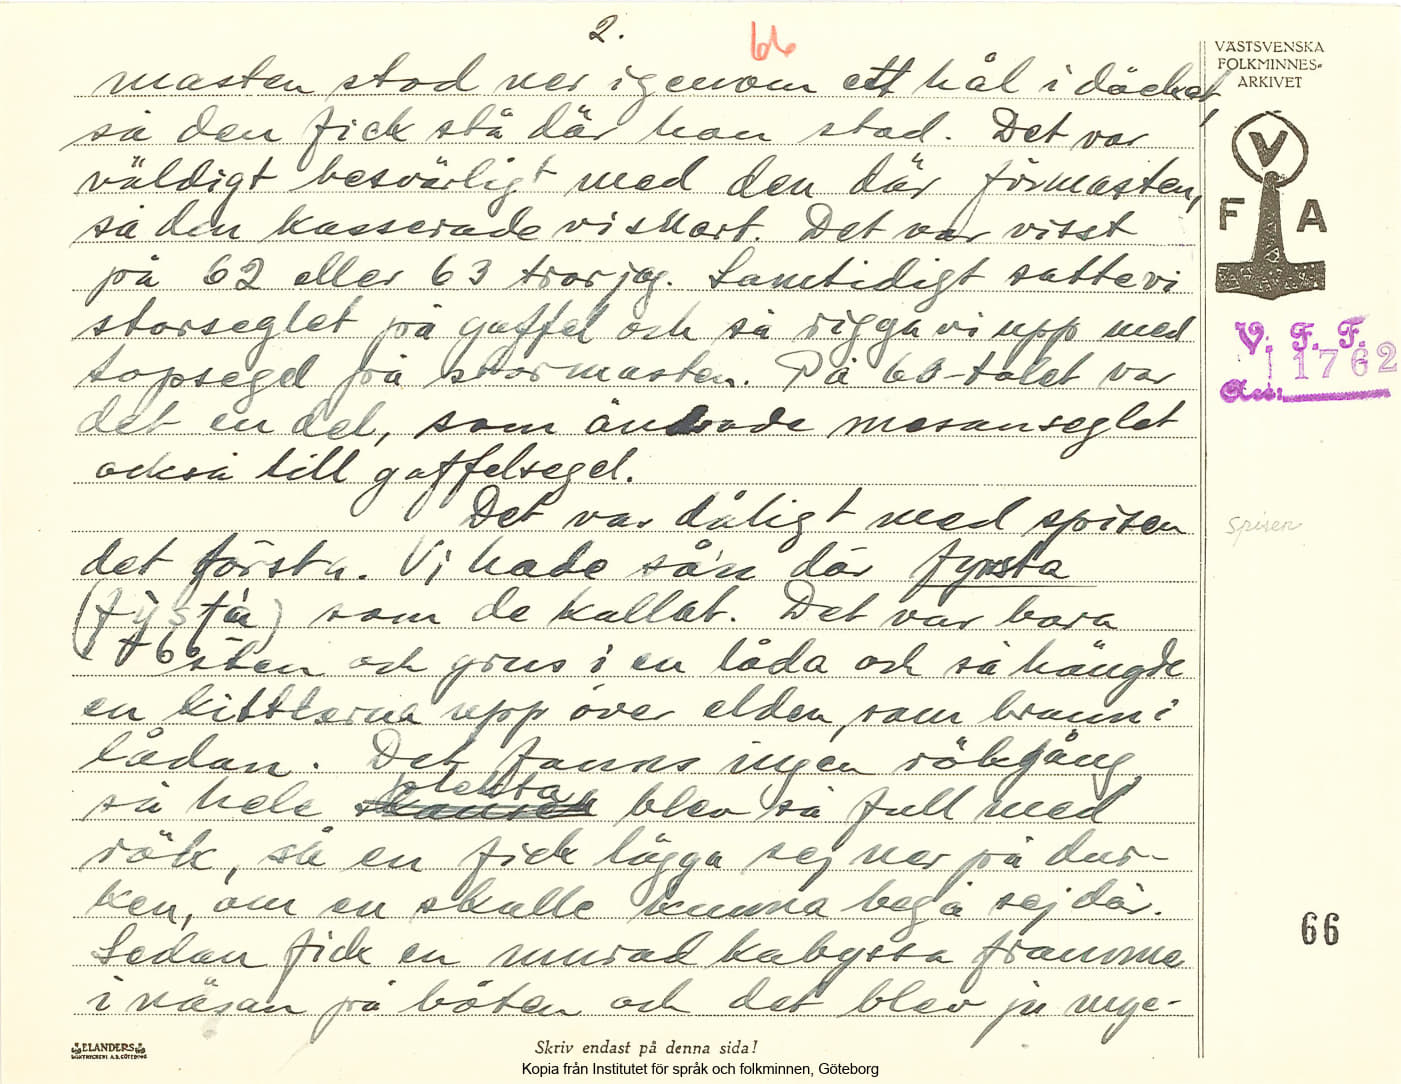 2.
66
VÄSTSVENSKA
FOLKMINNES-
ARKIVET
masten stod ner igenom ett hål i däcket
så den fick stå där han stod. Det var
väldigt besvärligt med den där förmasten,
så den kasserade vi snart. Det var visst
på 62 eller 63 tror jag. Samtidigt satte vi
storseglet på gaffel och så rigga vi upp med
topsegel på stormasten. På 60-talet var
det en del, som ändrade mesanseglet
också till gaffelsegel.
Det var dåligt med spisen
det första. Vi hade sån där fyrsta
som de kallat. Det var bara
sten och grus i en låda och så hängde
en kittlerna upp över elden, som brann i
lådan. Det fanns ingen rökgång
plekta
så hele skansen blev så full med
rök, så en fick lägga sej ner på dur-
ken, om en skulle kunna begå sej där.
Sedan fick en murad kabyssa framme
i näsan på båten och det blev ju mye-
V
F A
V. F. F.
1762
Acc:
spisen
66
ELANDERS
BOKTRYCKERI A.B. GÖTEBORG
Skriv endast på denna sida!
Kopia från Institutet för språk och folkminnen, Göteborg